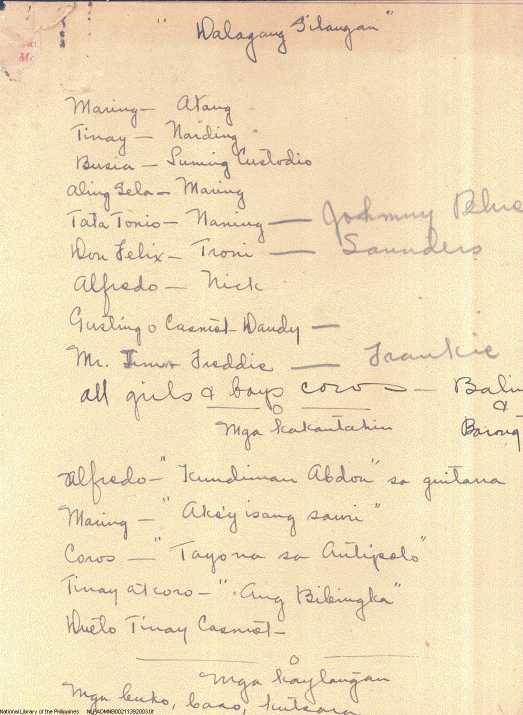 " Dalagang Silangan "
Maring — Atang
Tinay — Narding
Busia — Suming Custodio
Aling Sela — Maring
Tata Tonio — Naning — Johnny
Don Felix — Troni — Saunders
Alfredo — Nick
Gusting o Casmot Dandy —
Mr. Freddie — Frankie
all girls & boys coros — Balin
&
Mga kakantahin Barong
Alfredo — "Kundiman Abdon" sa guitarra
Maring — "Ako'y isang sawi"
Coros — "Tayo na sa Antipolo"
Tinay at coro — "Ang Bibingka"
Dueto Tinay Casmot —
Mga kaylangan
Mga buko, baso, kutsara
National Library of the Philippines